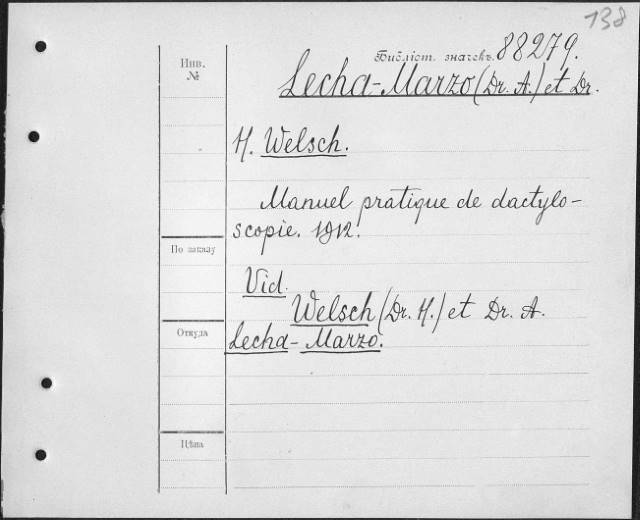 138
Библіот. значекъ. 88279.
Инв.
№
Lecha-Marzo (Dr. A.) et Dr.
H. Welsch.
Manuel pratique de dactylo-
scopie. 1912.
По заказу
Vid.
Welsch (Dr. H.) et Dr. A.
Откуда
Lecha-Marzo.
Цѣна